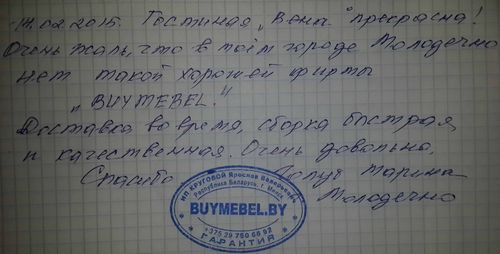 14.02.2015. Гостиная „Вена" прекрасна!
Очень жаль, что в моём городе Молодечно
нет такой хорошей фирмы
„BUYMEBEL."
Доставка вовремя, сборка быстрая
и качественная. Очень довольна.
Спасибо Марина
Молодечно
ИП КРУГОВОЙ Ярослав Валерьевич
Республика Беларусь, г. Минск
BUYMEBEL.BY
+375 29 750 66 92
ГАРАНТИЯ